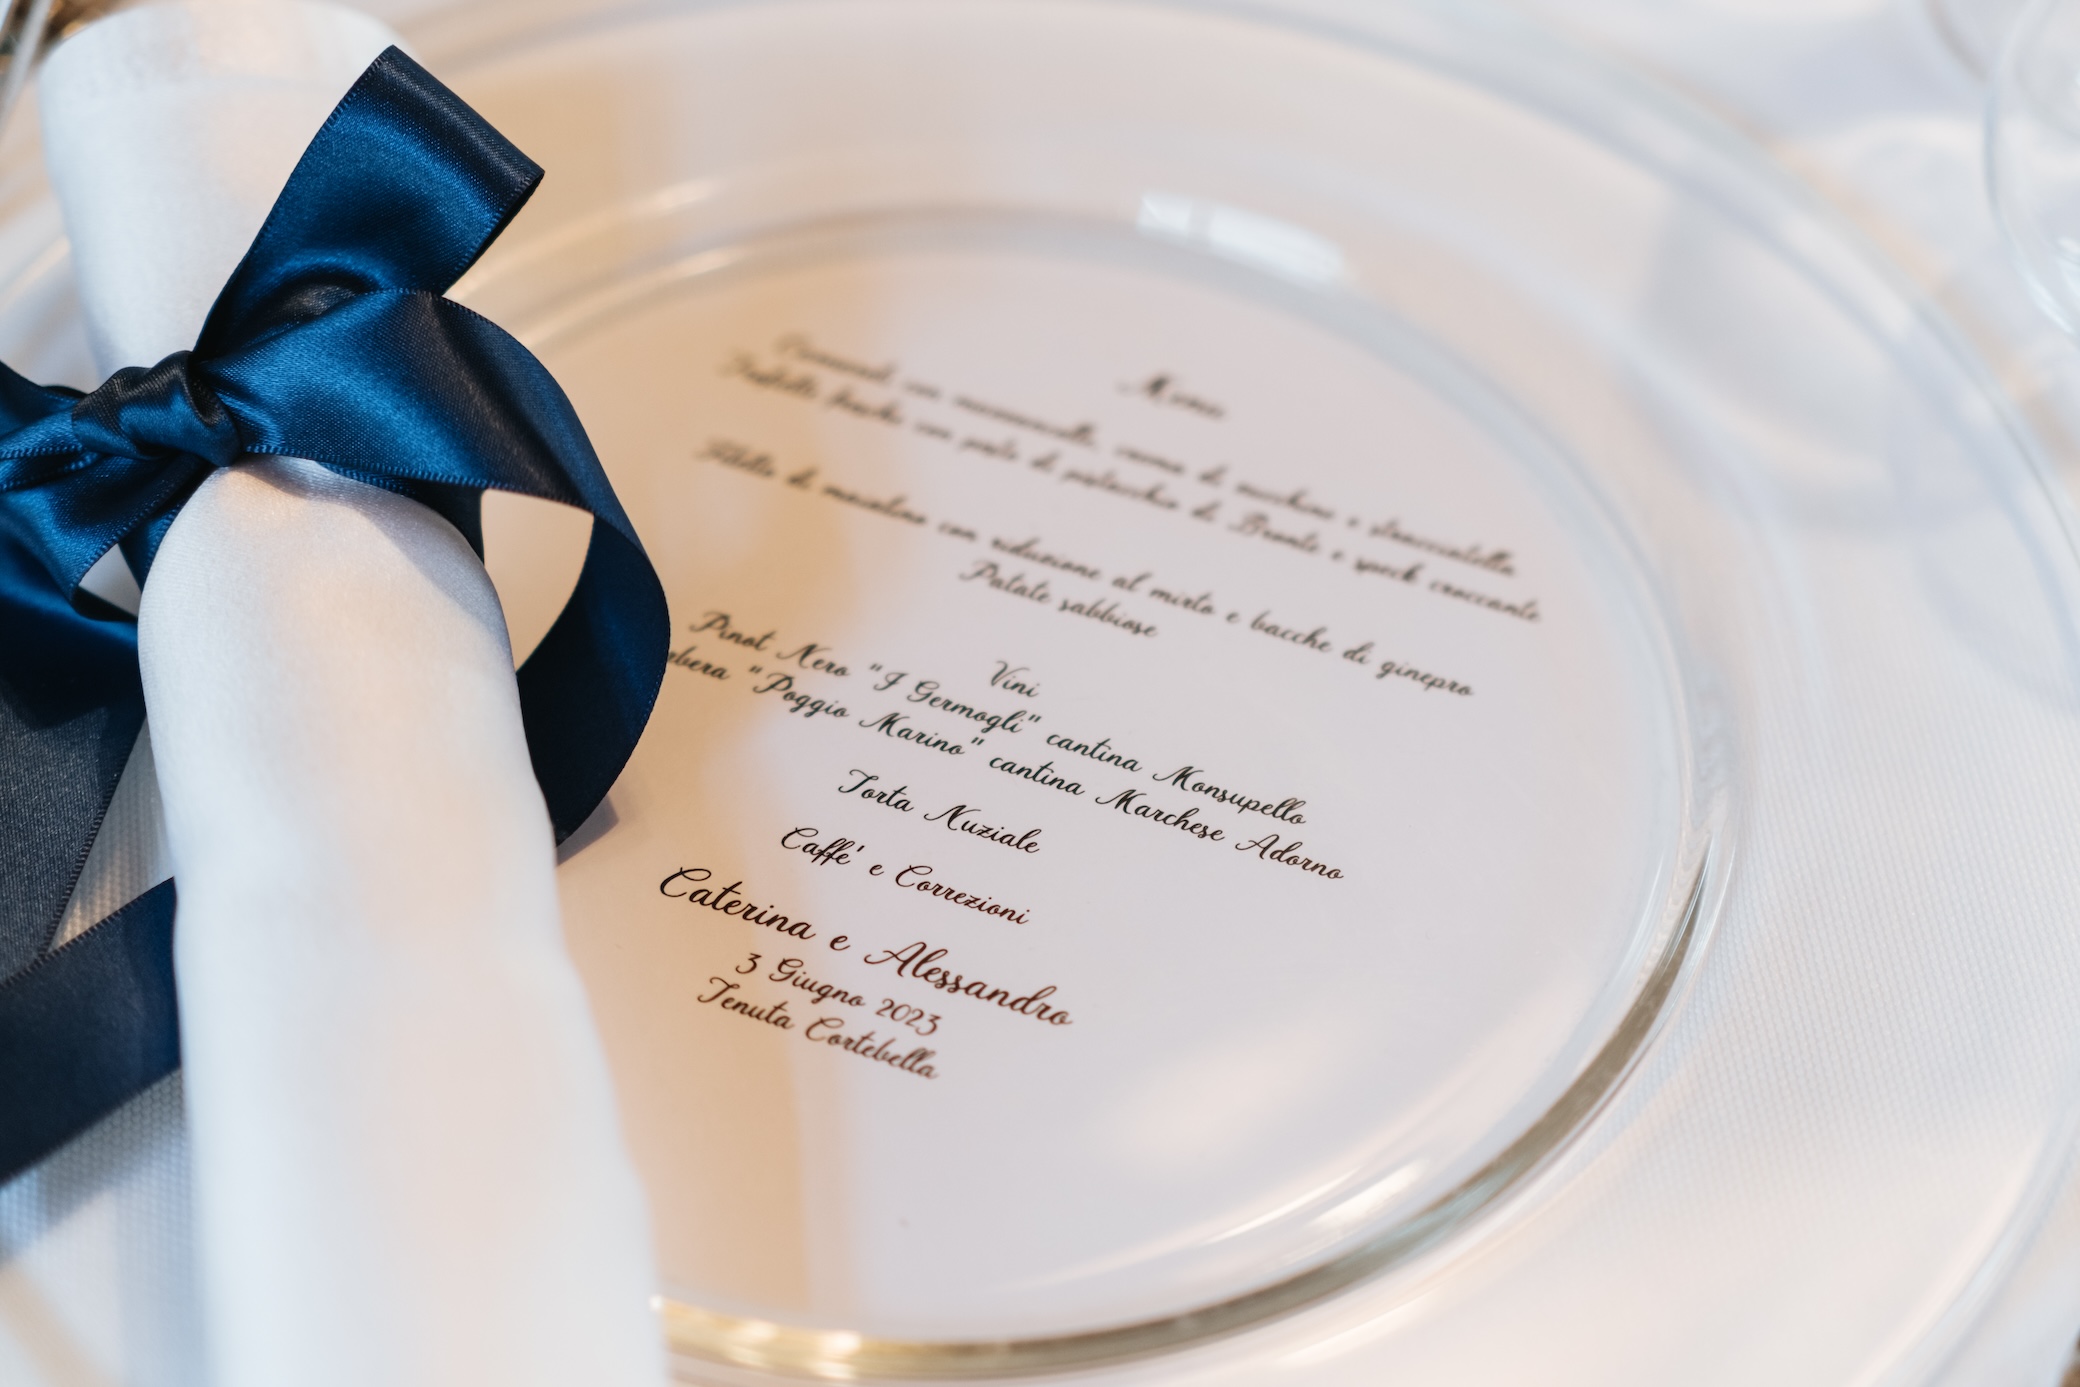 Menu
Carnaroli con mazzancolle, crema di zucchine e stracciatella
con pesto di pistacchio di Bronte e speck croccante
Filetto di maialino con riduzione al mirto e bacche di ginepro
Patate sabbiose
Vini
Pinot Nero "I Germogli" cantina Monsupello
"Poggio Marino" cantina Marchese Adorno
Torta Nuziale
Caffe' e Correzioni
Caterina e Alessandro
3 Giugno 2023
Tenuta Cortebella